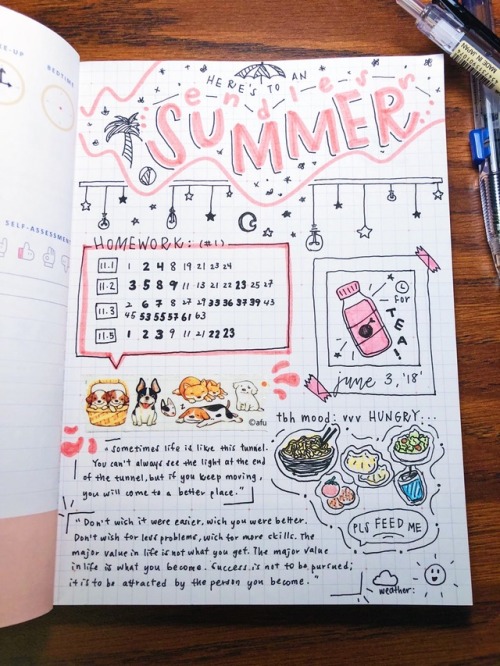 KE-UP
BEDTIME
SELF-ASSESSMENT
HERE'S TO AN
endless
SUMMER
HOMEWORK: (#1)
11.1 1 2 4 8 19 21 23 24
11.2 3 5 8 9 11 13 21 22 23 25 27
11.3 2 6 7 8 27 29 33 36 37 39 43
45 53 55 57 61 63
11.5 1 2 3 9 11 21 22 23
©afu
"sometimes life is like this tunnel.
You can't always see the light at the end
of the tunnel, but if you keep moving,
you will come to a better place."
"Don't wish it were easier, wich you were better.
Don't wish for less problems, wich for more skills. The
major value in life is not what you get. The major value
in life is what you become. Success is not to be pursued;
it is to be attracted by the person you become."
for
TEA!
june 3, '18'
tbh mood: vvv HUNGRY...
PLS FEED ME
weather:
MADE IN JAPAN